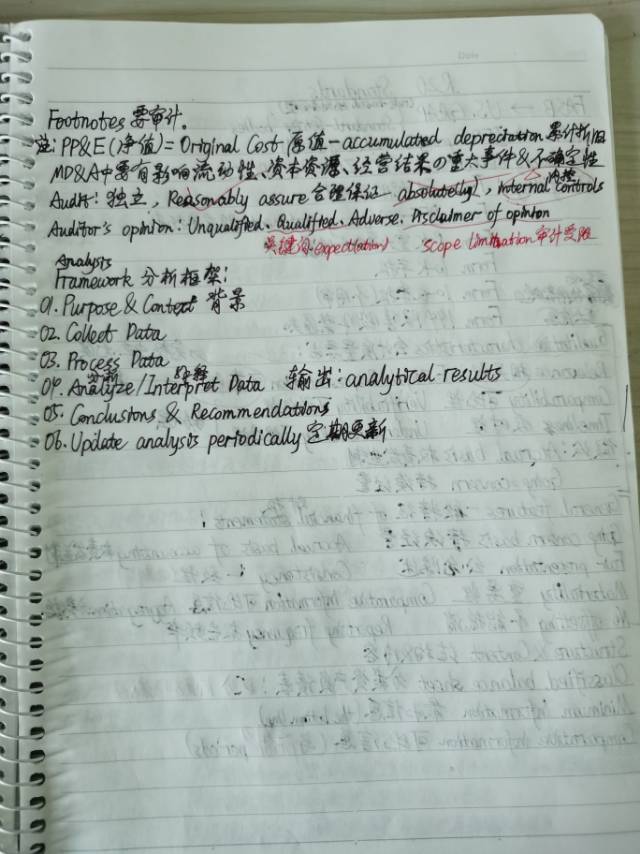 Footnotes 要审计.
注: PP&E(净值)= Original Cost 原值 - accumulated depreciation 累计折旧
MD&A中要有影响流动性、资本资源、经营结果の重大事件&不确定性
Audit: 独立, Reasonably assure 合理保证 - absolutely), internal controls 内控
Auditor's opinion: Unqualified、Qualified、Adverse、Disclaimer of opinion
关键词: expect(ation) scope limitation 审计受限
Analysis
Framework 分析框架:
01. Purpose & Context 背景
02. Collect Data
03. Process Data
04. Analyze/Interpret Data 输出: analytical results
分析 解释
05. Conclusions & Recommendations
06. Update analysis periodically 定期更新